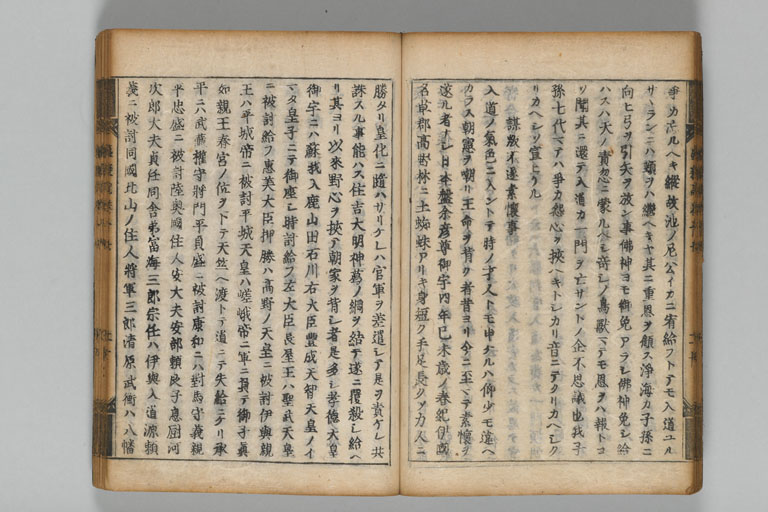 争カ流ルヘキ縦故池ノ尼公イカニ宥給フトテモ入道ユル
サヽランニハ頸ヲハ継ヘキヤ其ニ重恩ヲ顧ス浄海カ子孫ニ
向ヒ弓ヲ引矢ヲ放ン事佛神ヨモ御免アラシ佛神免シ給
ハスハ天ノ責忽ニ蒙ルヘシ奇シノ鳥獣マテモ恩ヲハ報トコ
ソ聞其ニ還テ入道カ一門ヲ亡サントノ企不思議也我子
孫七代マテハ争カ怨心ヲ挟ヘキトシカリ音ニテクリカヘシク
リカヘシソ宣ヒケル
謀叛不遂素懐事
入道ノ氣色ニ入ントテ時ノ才人トモ申ケルハ仰少モ違ヘ
カラス朝憲ヲ嘲リ王命ヲ背ク者昔ヨリ今ニ至マテ素懐ヲ
遂ル者ナシ日本盤余彦尊御宇四年己未歳ノ春紀伊國
名草郡高雄林ニ土蜘蛛アリキ身短ク手足長クシテ力人ニ
勝タリ皇化ニ随ハサリケレハ官軍ヲ差遣シテ是ヲ責ケレ共
誅スル事能ハス住吉大明神葛ノ網ヲ結テ遂ニ覆殺シ給ヘ
リ其ヨリ以来野心ヲ挟テ朝家ヲ背シ者是多シ孝徳天皇
御宇ニハ蘇我入鹿山田石川右大臣豊成天智天皇ノイ
マタ皇子ニテ御座シ時討給フ左大臣長屋王ハ聖武天皇
ニ被討給フ惠美大臣押勝ハ高野ノ天皇ニ被討伊與親
王ハ平城帝ニ被討平城天皇ハ嵯峨帝ニ軍ニ負テ御子眞
如親王春宮ノ位ヲトテ天竺ヘ渡トテ道ニテ失給ニケリ承
平ニハ武蔵權守將門平貞盛ニ被討康和ニハ對馬守義親
平忠盛ニ被討陸奥國住人安大夫安部頼時子息厨河
次郎大夫貞任同舎弟富海三郎宗任ハ伊與入道源頼
義ニ被討同國北山ノ住人將軍三郎清原武衡ハ八幡